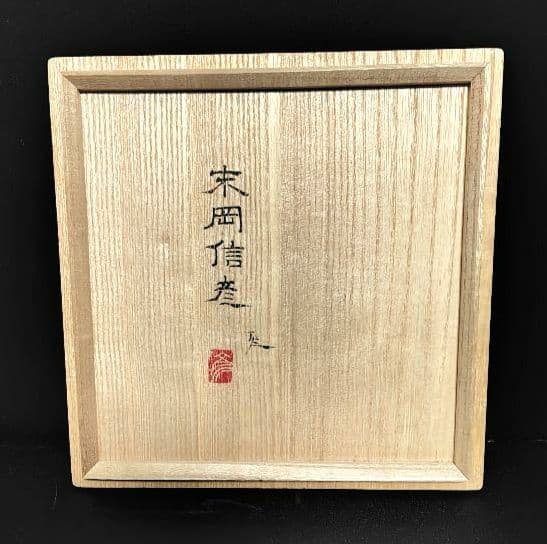 末岡信彦